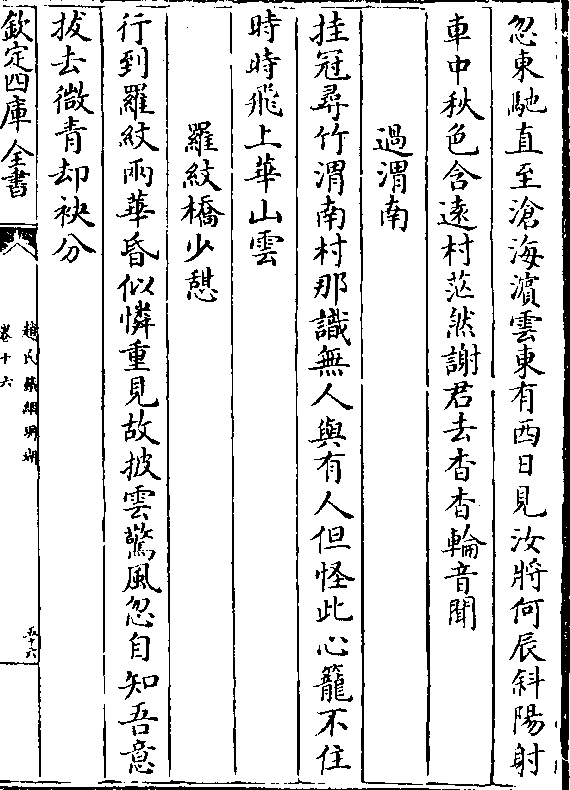 忽東馳直至滄海濵雲東有西日見汝將何辰斜陽射
車中秋色含逺村茫然謝君去杳杳輪音聞
過渭南
挂冠尋竹渭南村那識無人與有人但怪此心籠不住
時時飛上華山雲
羅紋橋少憩
行到羅紋兩華昏似憐重見故披雲驚風忽自知吾意
拔去微青却袂分
欽定四庫全書
趙氏鐵網珊瑚
卷十六
五十六